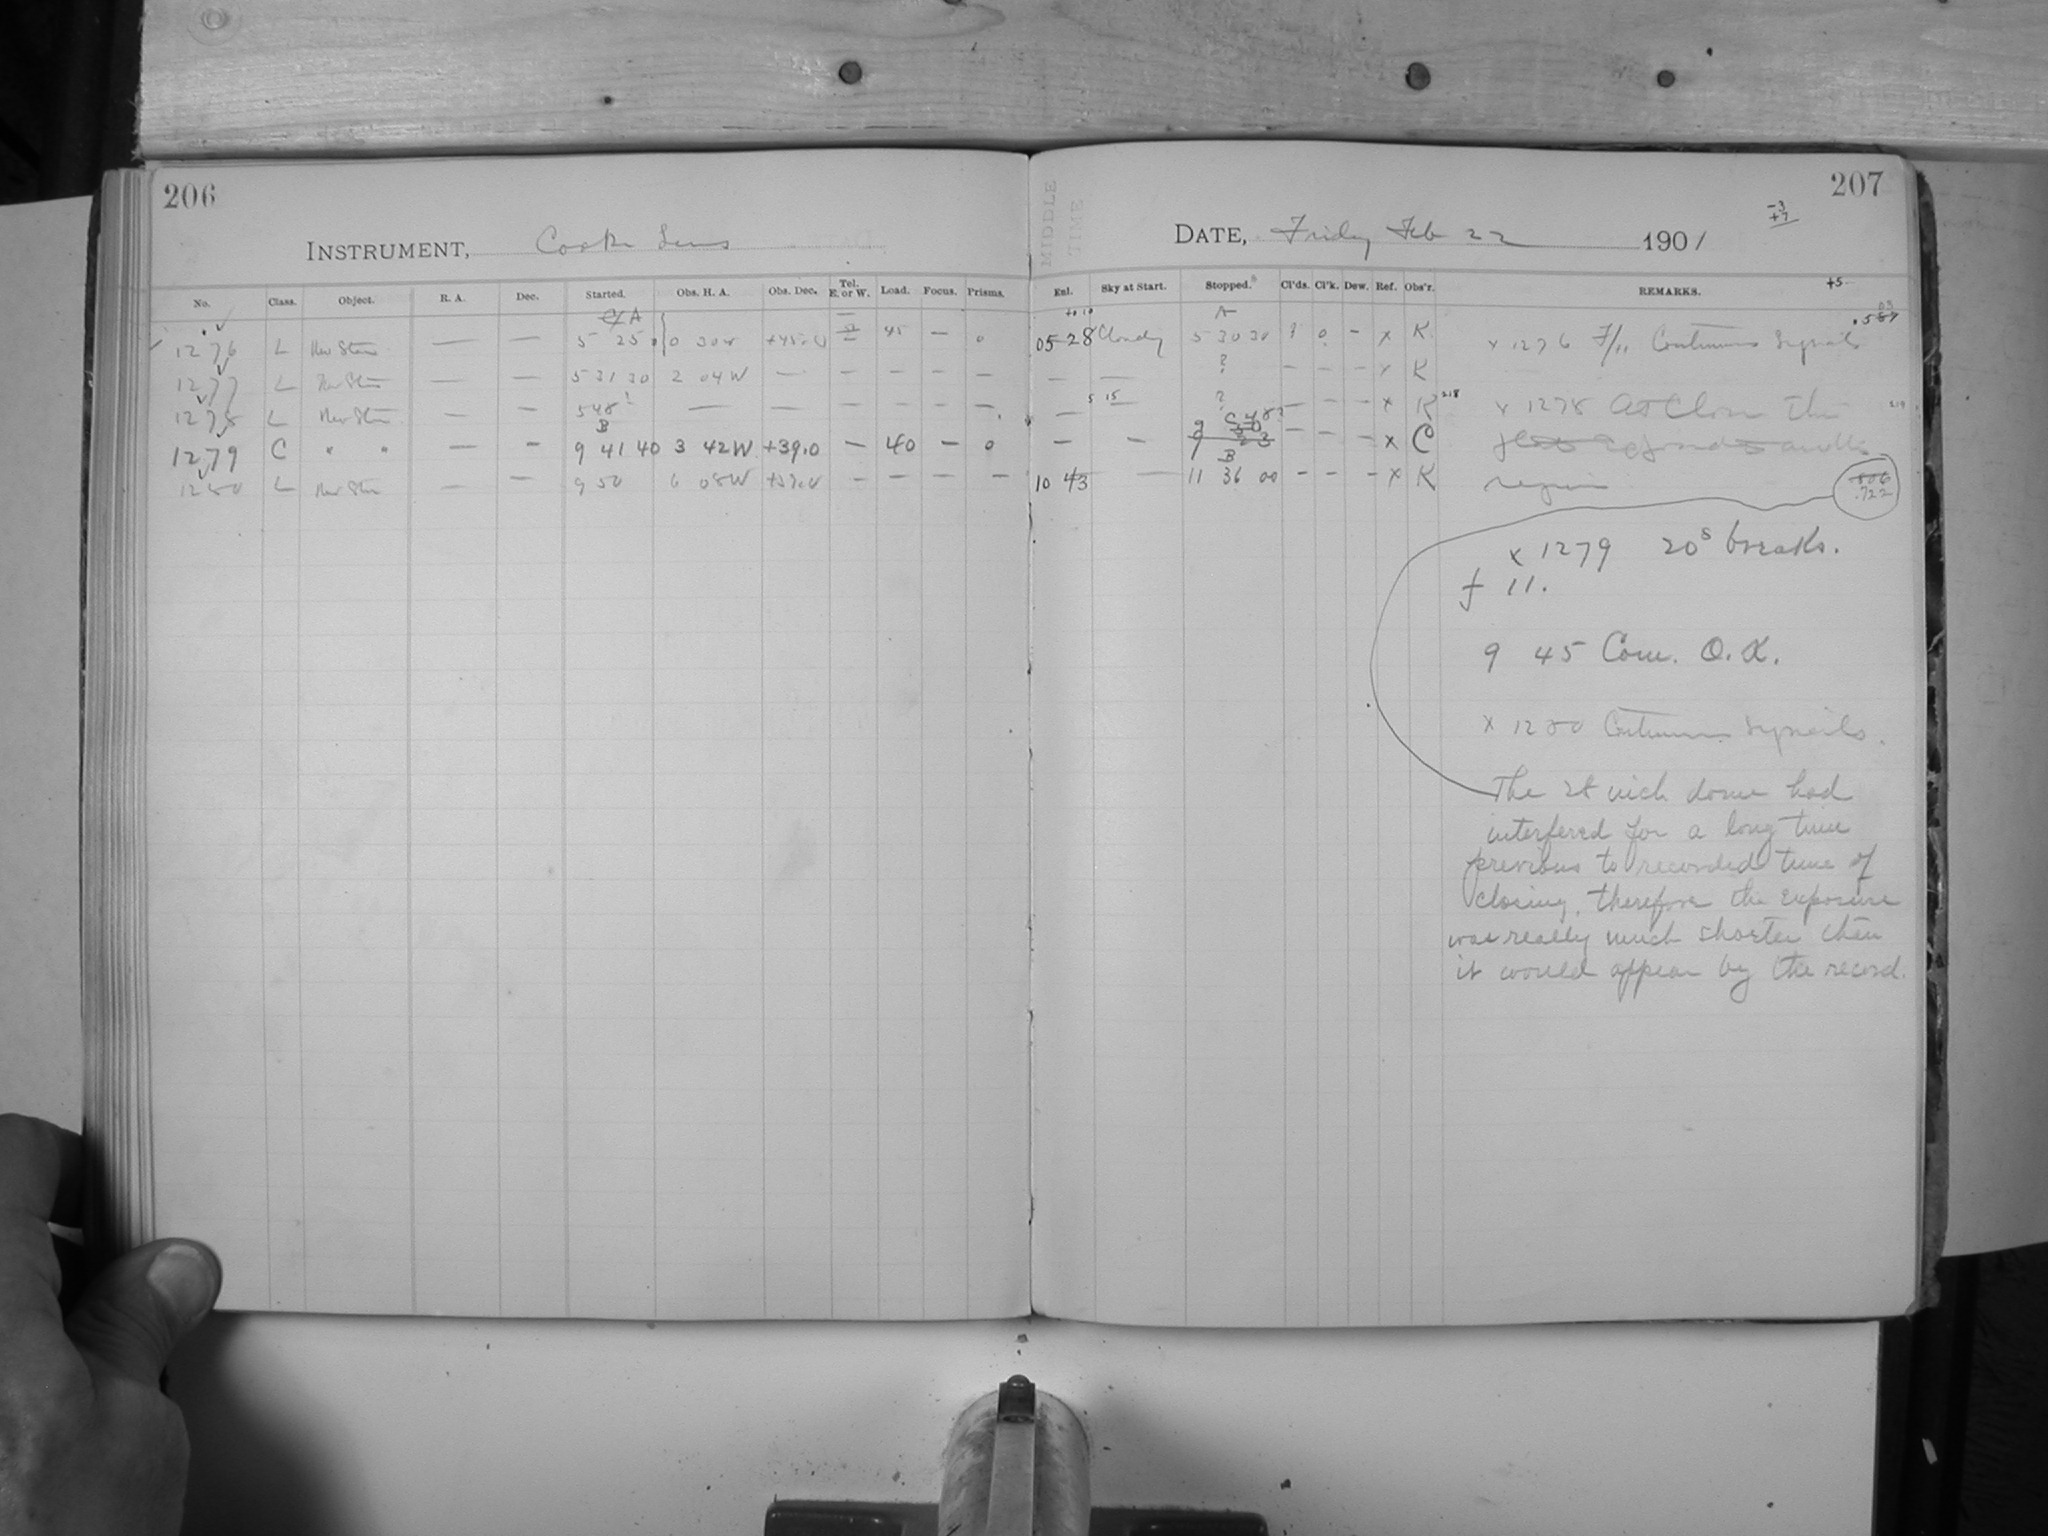 206
INSTRUMENT, Cooke Lens
No. Class. Object. R. A. Dec. Started. Obs. H. A. Obs. Dec. Tel. E. or W. Load. Focus. Prisms.
A
1276 L New Star — — 5 25 0 30 +45.0 45 — 0
1277 L New Star — — 5 31 30 2 04 W — — — — —
1278 L New Star — — 5 48 ? — — — — — —
B
1279 C " " — — 9 41 40 3 42 W +39.0 — 40 — 0
1280 L New Star — — 9 50 6 08 W — — — —
207
MIDDLE TIME
DATE, Friday Feb 22 1901
-3
+7
Enl. Sky at Start. Stopped. Cl'ds. Cl'k. Dew. Ref. Obs'r. REMARKS. +5
A
05 28 Cloudy 5 30 30 ? 0 — x K x 1276 F/11 Continuous Signals
— — ? — — — x K
— — ? — — — x K x 1278 At Close the
— — — — — x C
B
10 43 — 11 36 00 — — — x K region
.722
x 1279 20s breaks.
f 11.
9 45 Com. O.K.
x 1280 Continuous Signals.
The 24 inch dome had
interfered for a long time
previous to recorded time of
closing, therefore the exposure
was really much shorter than
it would appear by the record.